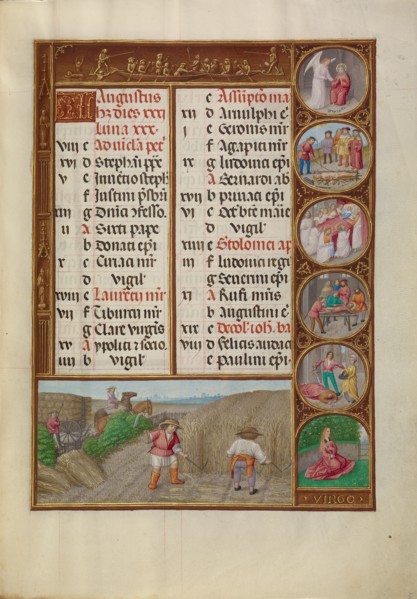 Augustus
hz dies xxxi
Luna xxx.
viii c Ad vīcla pet
xvi d Stephani pp̄e
v e Inuētio steph
f Iustini p̄sbri
xiii g Dn̄ica
ii A Sixti pape
b Donati ep̄i
x c Ciriaci mr̄
d vigil'
xviii e Laurētii mr̄
vii f Tiburtii mr̄
g Clare virgīs
xv A ypoliti z socio.
iiii b vigil'
c Assūptō ma
xii d Arnulphi e'
i e Geronis mr̄
f Agapiti mr̄
ix g Ludouici ep̄i
A Bernardi ab
xvii b priuati ep̄i
vi c
d vigil'
xiiii e
iii f Ludouici regi
g Seuerini ep̄i
xi A Rufi
b Augustini e'
xix c Decol. ioh. ba
viii d felicis audac
e Paulini ep̄i
VIRGO